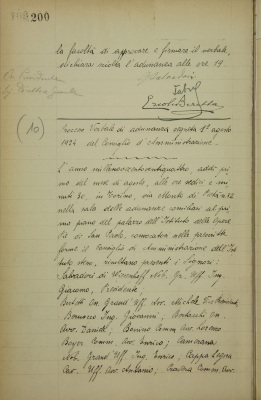 200
la facoltà di approvare e firmare il verbale,
dichiara sciolta l'adunanza alle ore 19.
(10)
Processo Verbale di adunanza seguita 1° agosto
1924 del Consiglio d'Amministrazione.
L'anno millenovecentoventiquattro, addì pri
mo del mese di agosto, alle ore sedici e mi
nuti 30, in Torino, via Monte di Pietà n. 32
nella sala delle adunanze consiliari al pri
mo piano del palazzo dell'Istituto delle Opere
Pie di San Paolo, convocatosi nelle prescritte
forme il Consiglio di Amministrazione dell'Isti
tuto stesso, risultano presenti i Signori:
Salvadori di Wiesenhoff Nob. Gr. Uff. Ing.
Giacomo, Presidente
On. Grand'Uff. Avv. Michele Vice
Ing. Giovanni; On.
Avv. Daniele; Bonino Comm. Avv. Lorenzo
Boyer Comm. Avv. Enrico;
Nob. Grand'Uff. Ing. Enrico; Cappa Legora
Cav. Uff. Avv. Antonio; Comm. Avv.